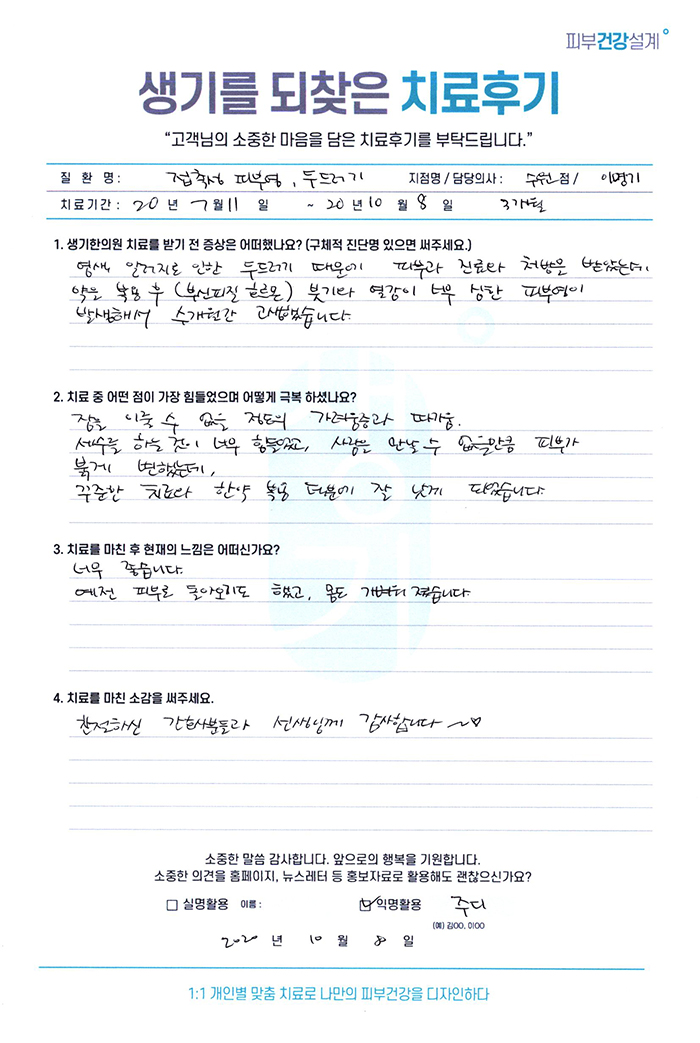 피부건강설계
생기를 되찾은 치료후기
“고객님의 소중한 마음을 담은 치료후기를 부탁드립니다.”
질 환 명 : 접촉성 피부염, 두드러기 지점명 / 담당의사 : 수원점 / 이명기
치료기간 : 20 년 7월 11 일 ~ 20 년 10 월 8 일 3개월
1. 생기한의원 치료를 받기 전 증상은 어떠했나요? (구체적 진단명 있으면 써주세요.)
염색 알러지로 인한 두드러기 때문에 피부과 진료와 처방을 받았는데,
약을 복용 후 (부신피질 호르몬) 붓기와 열감이 너무 심한 피부염이
발생해서 수개월간 고생했습니다.
2. 치료 중 어떤 점이 가장 힘들었으며 어떻게 극복 하셨나요?
잠을 이룰 수 없을 정도의 가려움증과 따가움.
세수를 하는 것이 너무 힘들었고, 사람을 만날 수 없을만큼 피부가
붉게 변했는데,
꾸준한 치료와 한약 복용 덕분에 잘 낫게 되었습니다.
3. 치료를 마친 후 현재의 느낌은 어떠신가요?
너무 좋습니다.
예전 피부로 돌아오기도 했고, 몸도 가벼워 졌습니다.
4. 치료를 마친 소감을 써주세요.
친절하신 간호사분들과 선생님께 감사합니다 ~♡
소중한 말씀 감사합니다. 앞으로의 행복을 기원합니다.
소중한 의견을 홈페이지, 뉴스레터 등 홍보자료로 활용해도 괜찮으신가요?
□ 실명활용 이름 : ☑ 익명활용 주디
(예) 김00, 이00
2020 년 10 월 8 일
1:1 개인별 맞춤 치료로 나만의 피부건강을 디자인하다